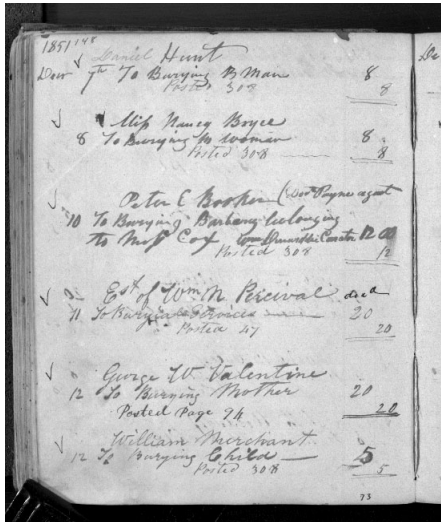 1851 148
Daniel Hunt
Decr 7th To Burying B Man 8
Posted 308 8
Miss Nancy Boyce
8 To Burying B woman 8
Posted 308 8
Peter C Booker ( Payne agent
10 To Burying Barbary belonging
to Miss Cox 12 00
Posted 308 12
Est of Wm N Percival decd
11 To Burying Services 20
Posted 47 20
George W Valentine
12 To Burying Mother 20
Posted Page 94 20
William Merchant
12 To Burying Child 5
Posted 308 5
73